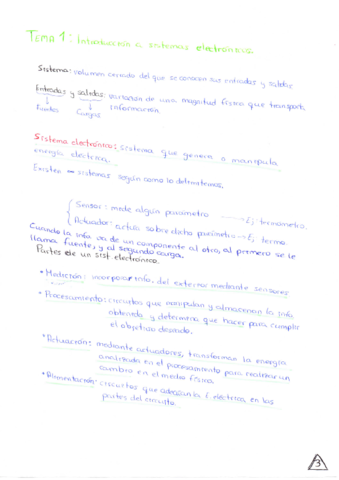 TEMA 1: Introducción a sistemas electrónicos
Sistema: volumen cerrado del que se conocen sus entradas y salidas
Entradas y salidas: variación de una magnitud física que transporta
↓ ↓ información
Fuentes Cargas
Sistema electrónico: sistema que genera o manipula
energía eléctrica.
Existen ≠ sistemas según como lo determinemos.
Sensor: mide algún parámetro → Ej: termómetro.
Actuador: actúa sobre dicho parámetro → Ej: termo
Cuando la info va de un componente al otro, al primero se le
llama fuente, y al segundo carga.
Partes de un sist. electrónico.
• Medición: incorporar info. del exterior mediante sensores
• Procesamiento: circuitos que manipulan y almacenan la info
obtenida y determina que hacer para cumplir
el objetivo deseado.
• Actuación: mediante actuadores, transforman la energía
analizada en el procesamiento para realizar un
cambio en el medio físico.
• Alimentación: circuitos que adecuan la E eléctrica en las
partes del circuito.
3